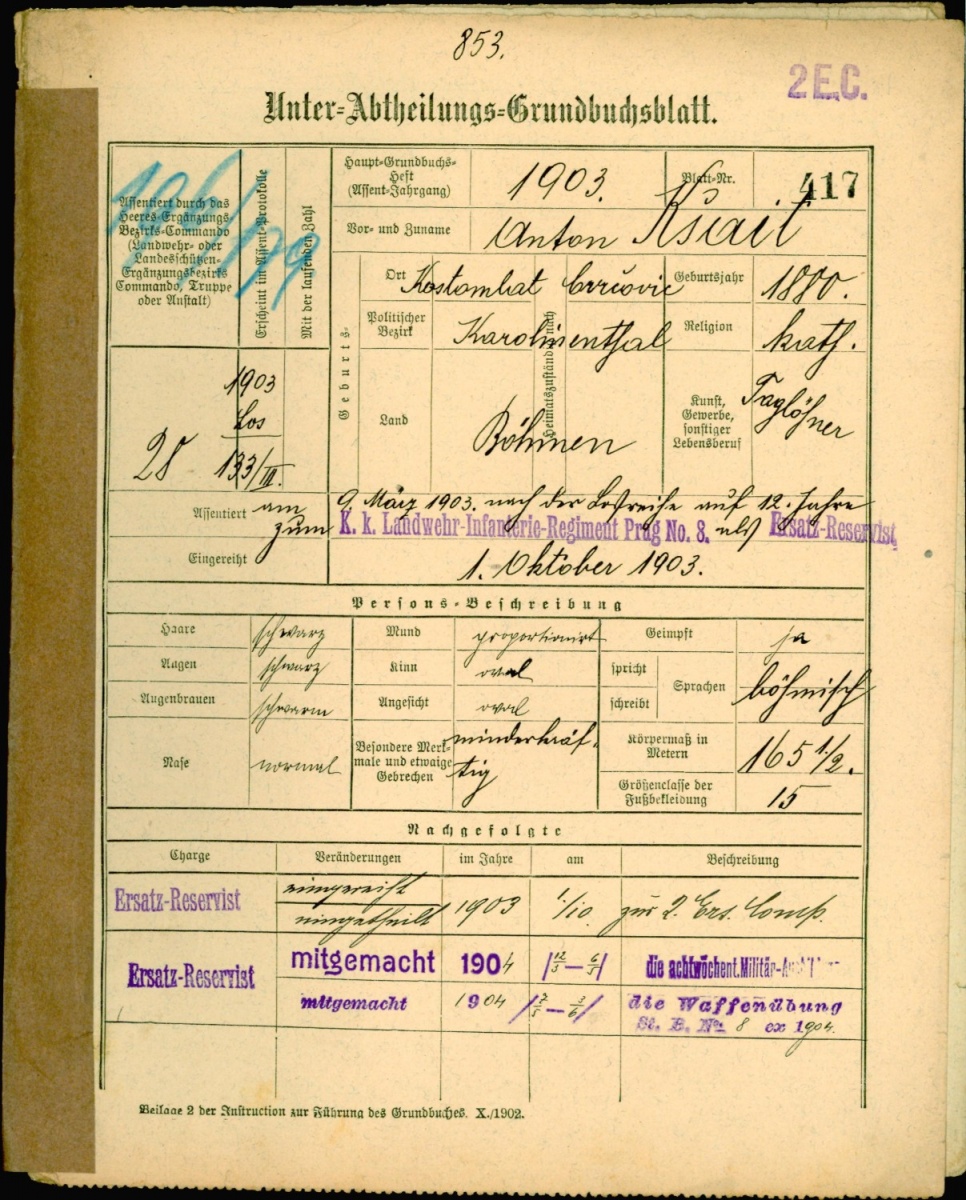 853.
2 E.C.
Unter-Abtheilungs-Grundbuchsblatt.
Assentiert durch das
Heeres-Ergänzungs-
Bezirks-Commando
(Landwehr- oder
Landesschützen-
Ergänzungsbezirks
Commando, Truppe
oder Anstalt)
Erscheint im Assent-Protokolle
Mit der laufenden Zahl
Haupt-Grundbuchs-
Heft
(Assent-Jahrgang)
1903.
Blatt-Nr.
417
Vor- und Zuname
Anton
Geburts-
Ort
Kostomlat
Geburtsjahr
1880.
Politischer
Bezirk
Karolinenthal
Heimatszuständig nach
Religion
kath.
Land
Böhmen
Kunst,
Gewerbe,
sonstiger
Lebensberuf
Taglöhner
28
1903
Los
133/III.
Assentiert
am 9 März 1903. nach der Losreihe auf 12. Jahre
zum K. k. Landwehr-Infanterie-Regiment Prag No. 8. als Ersatz-Reservist.
Eingereiht
1. Oktober 1903.
Persons-Beschreibung
Haare
schwarz
Mund
proportionirt
Geimpft
ja
Augen
schwarz
Kinn
oval
spricht
schreibt
Sprachen
böhmisch
Augenbrauen
Angesicht
oval
Nase
normal
Besondere Merk-
male und etwaige
Gebrechen
minderkräf-
tig
Körpermaß in
Metern
165 1/2.
Größenclasse der
Fußbekleidung
15
Nachgefolgte
Charge
Veränderungen
im Jahre
am
Beschreibung
Ersatz-Reservist
eingereiht
eingetheilt
1903
1/10.
zur 2. Ers. Comp.
Ersatz-Reservist
mitgemacht
1904
die achtwöchent. Militär-
mitgemacht
1904
die Waffenübung
St. B. No. 8 ex 1904.
Beilage 2 der Instruction zur Führung des Grundbuches. X./1902.